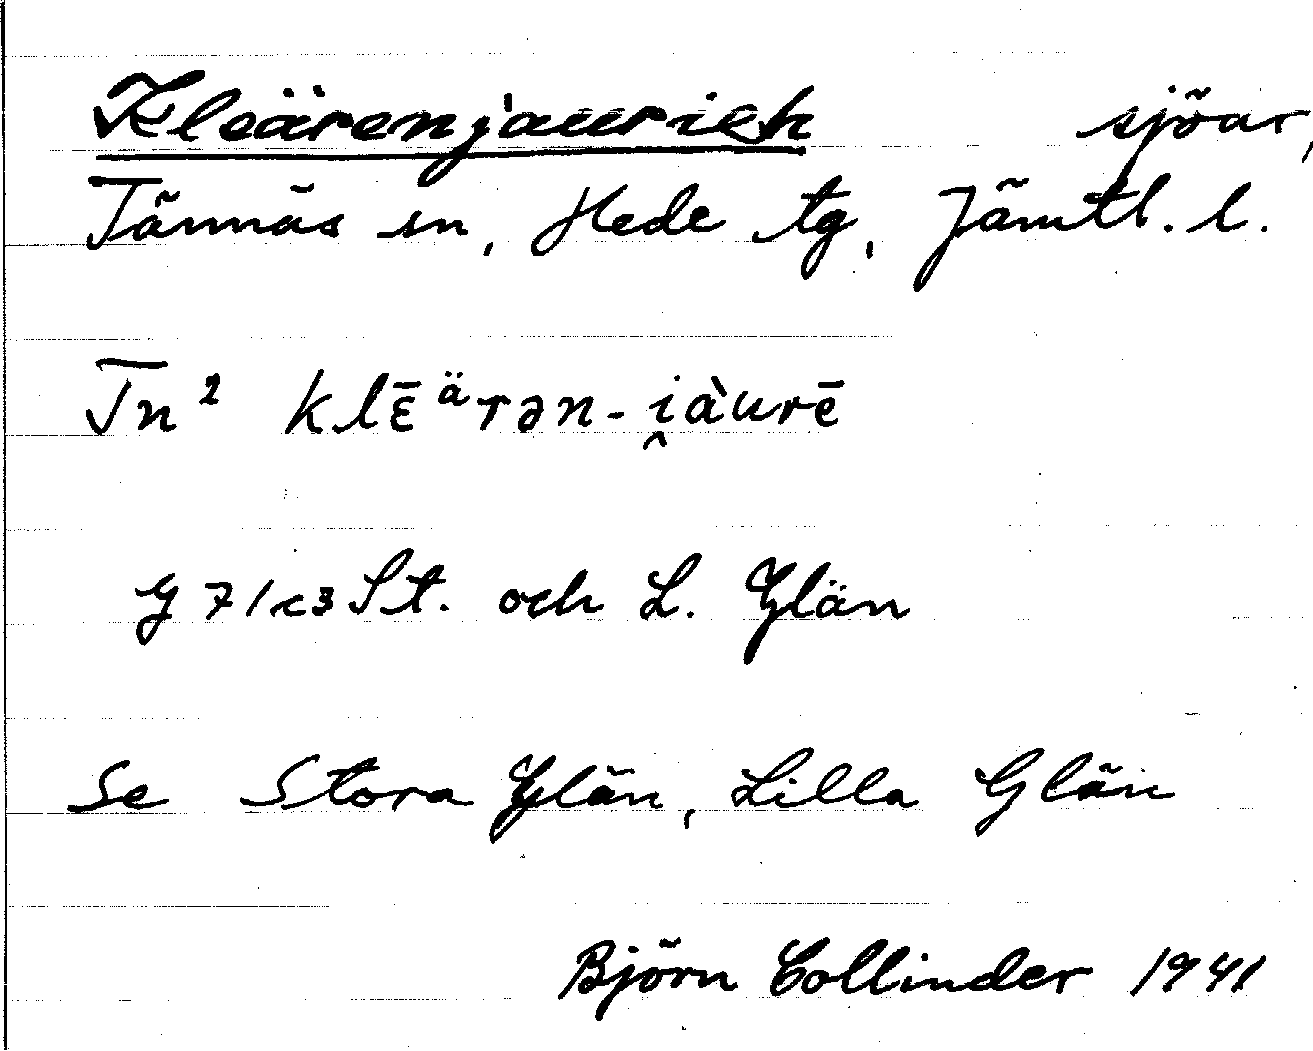 Kleärenjaurieh sjöar,
Tännäs sn, Hede tg, Jämtl. l.
Tn² klɛ̄ᵃ̈rən-i̯àurē
G 7/c3 St. och L. Glän
Se Stora Glän, Lilla Glän
Björn Collinder 1941